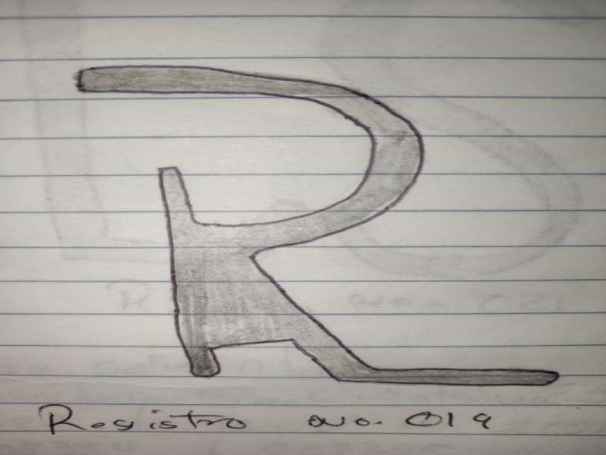 R
Registro No. 019